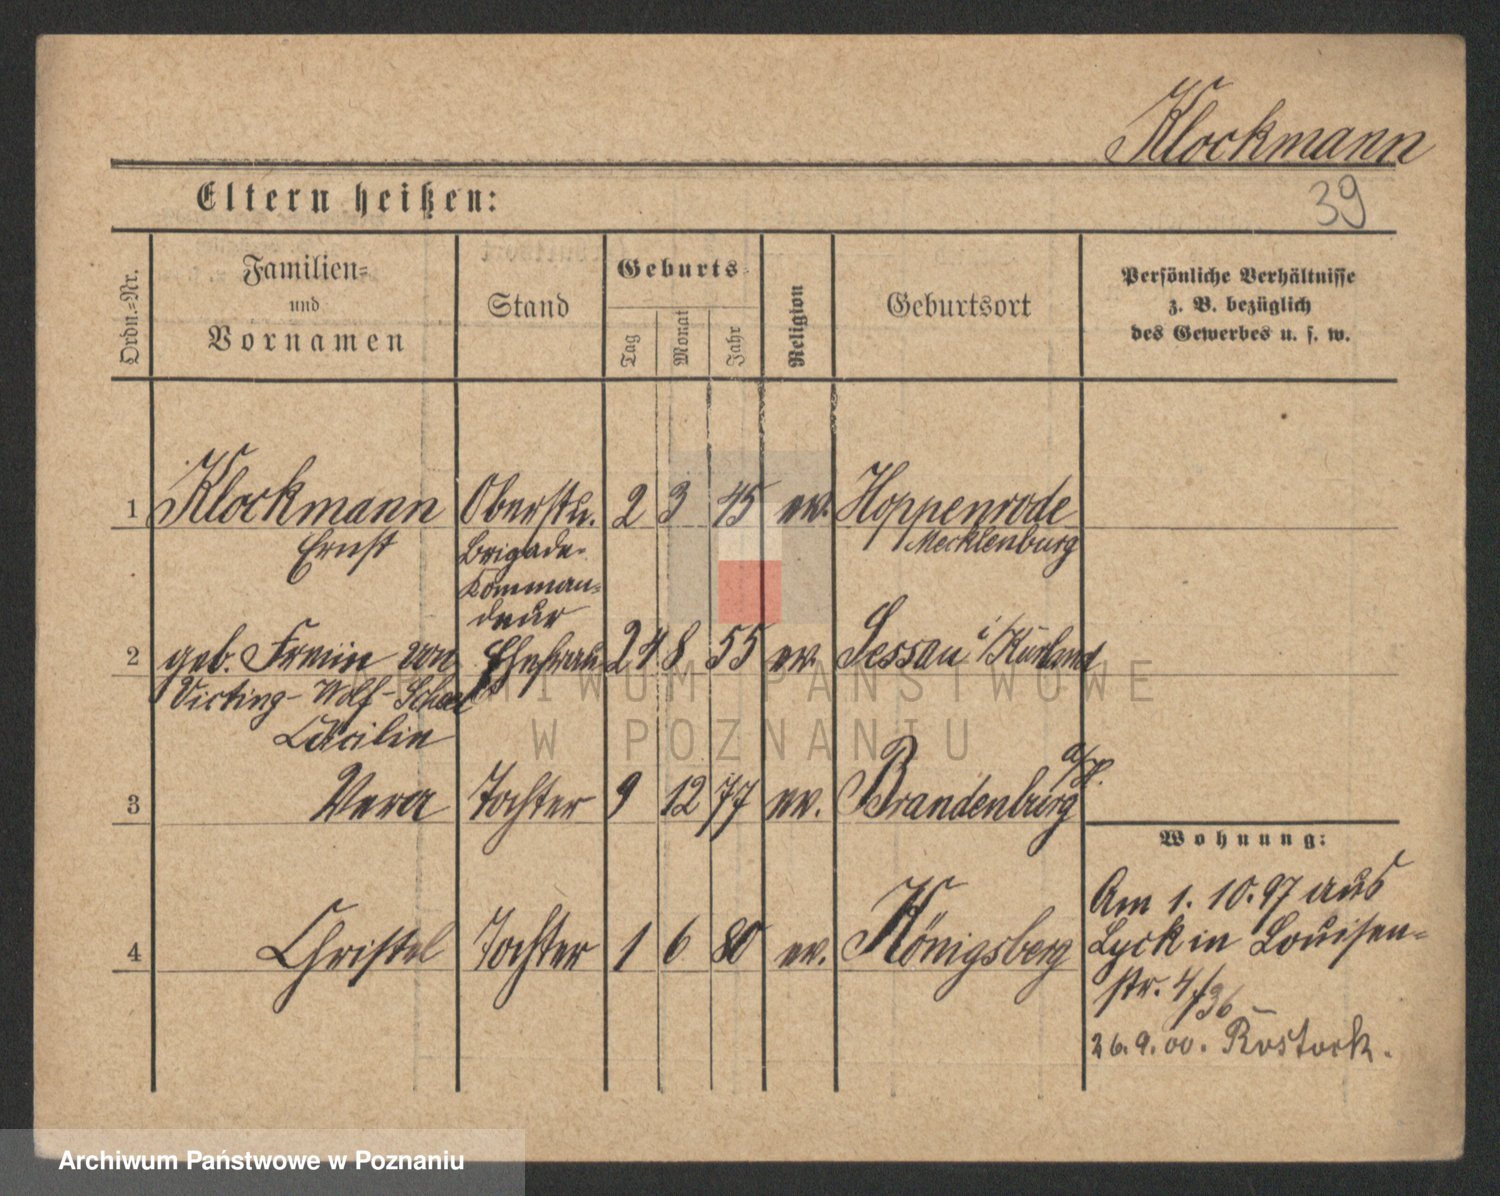 Klockmann
39
Eltern heißen:
Ordn.-Nr.
Familien-
und
Vornamen
Stand
Geburts-
Tag
Monat
Jahr
Religion
Geburtsort
Persönliche Verhältnisse
z. B. bezüglich
des Gewerbes u. s. w.
1 Klockmann Oberstu. 2 3 45 ev. Hoppenrode
Ernst Brigade- Mecklenburg
Komman-
deur
2 geb. Ehefrau 24 8 55 ev. Sessau i/Kurland
Vieting-
Cäcilie
3 Vera Tochter 9 12 77 ev. Brandenburg a/H.
Wohnung:
4 Christel Tochter 1 6 80 ev. Königsberg
Am 1. 10. 97 aus
Lyck in Louisen-
str. 4
26. 9. 00. Rostock.
ARCHIWUM PAŃSTWOWE
W POZNANIU
Archiwum Państwowe w Poznaniu